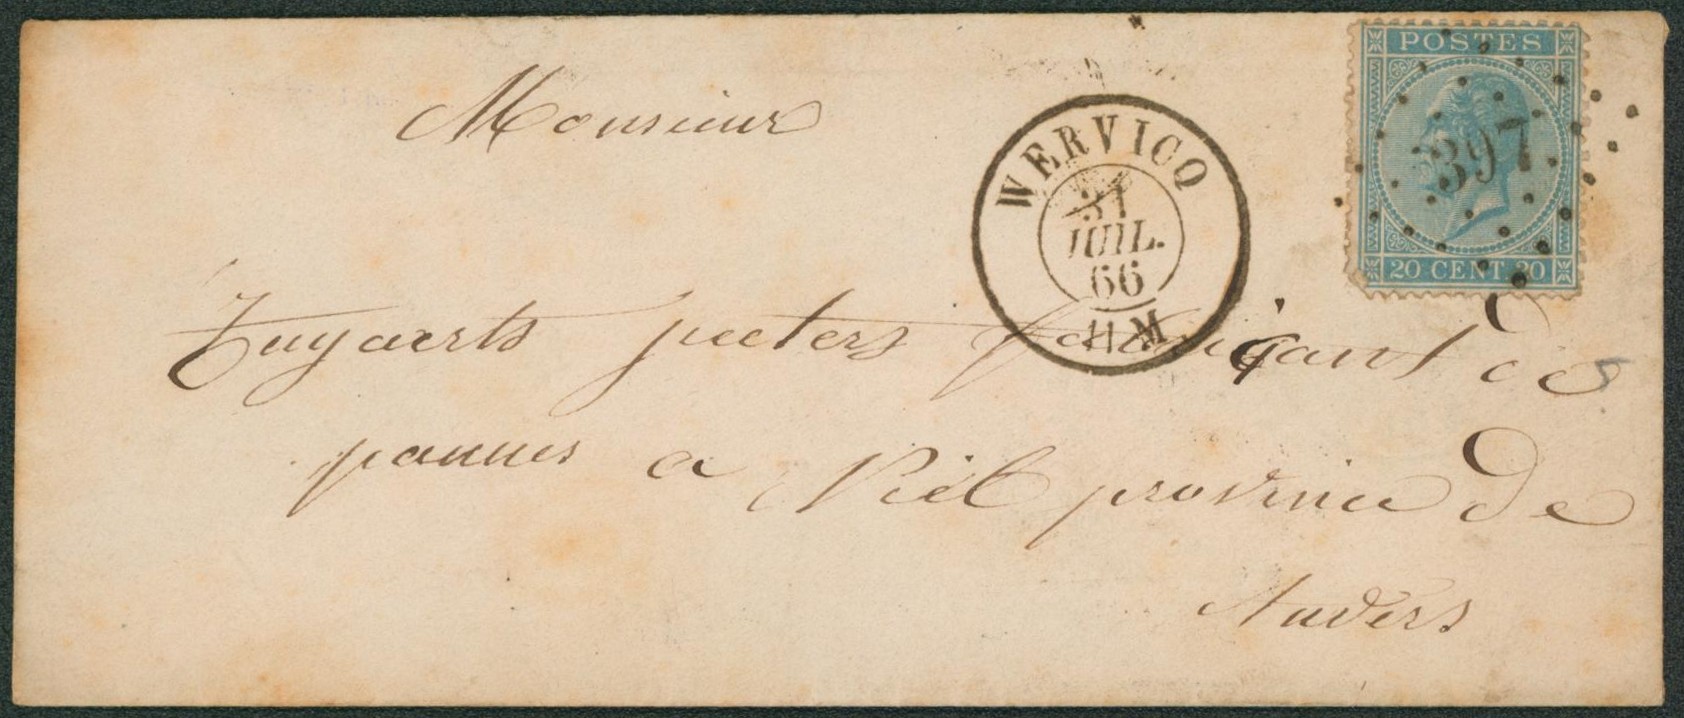 POSTES
397
20 CENT 20
WERVICQ
31
JUIL.
66
11 M
Monsieur
Zuyaerts peeters fabriquant de
pannes a Niel province de
Anvers